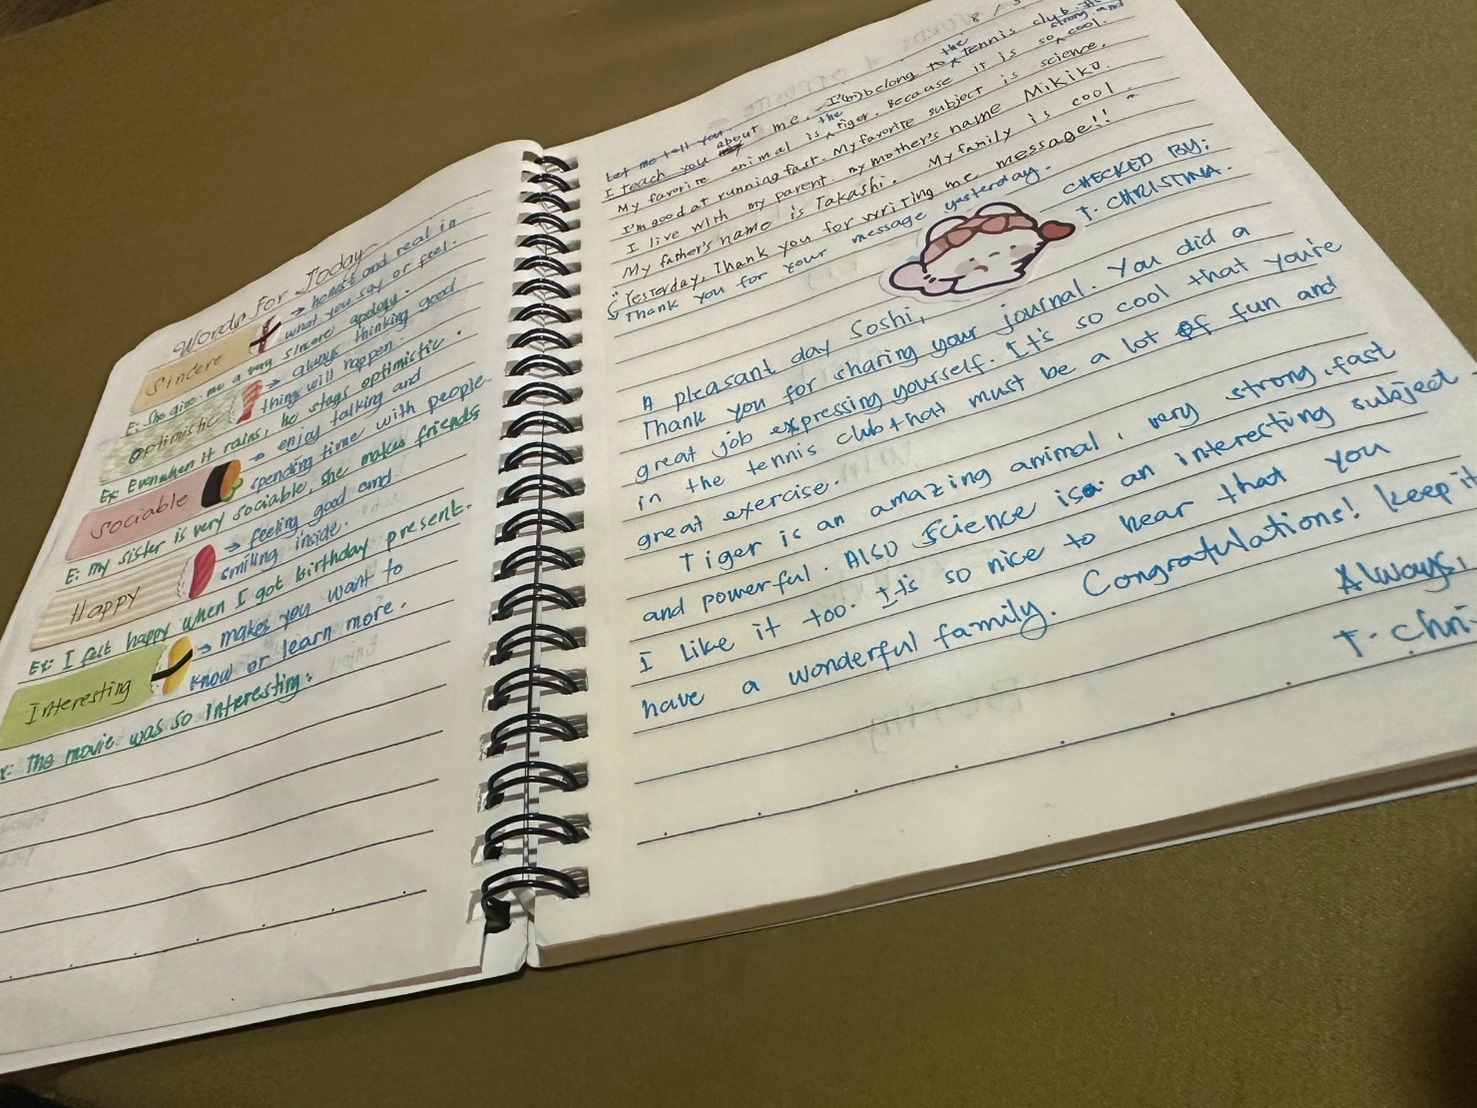 Words For Today
Sincere → honest and real in
what you say or feel.
E: She give me a very sincere apology.
Optimistic → always thinking good
things will happen.
Ex: Even when it rains, he stays optimistic.
Sociable → enjoy talking and
spending time with people.
E: my sister is very sociable, she makes friends
Happy → feeling good and
smiling inside.
Ex: I felt happy when I got birthday present.
Interesting → makes you want to
know or learn more.
x: The movie was so interesting.
8 / 5
Let me tell you
I teach you about me. I'(m) belong to the tennis club.
My favorite animal is the tiger. Because it is so strong and cool.
I'm good at running fast. My favorite subject is science.
I live with my parent. my mother's name Mikiko.
My father's name is Takashi. My family is cool.
"Yesterday, Thank you for writing me message!!
Thank you for your message yesterday.
CHECKED BY:
T. CHRISTINA.
A pleasant day Soshi,
Thank you for sharing your journal. You did a
great job expressing yourself. It's so cool that you're
in the tennis club that must be a lot of fun and
great exercise.
Tiger is an amazing animal, very strong, fast
and powerful. Also Science is an interesting subject
I like it too. It is so nice to hear that you
have a wonderful family. Congratulations! keep it
Always,
T. Chri-